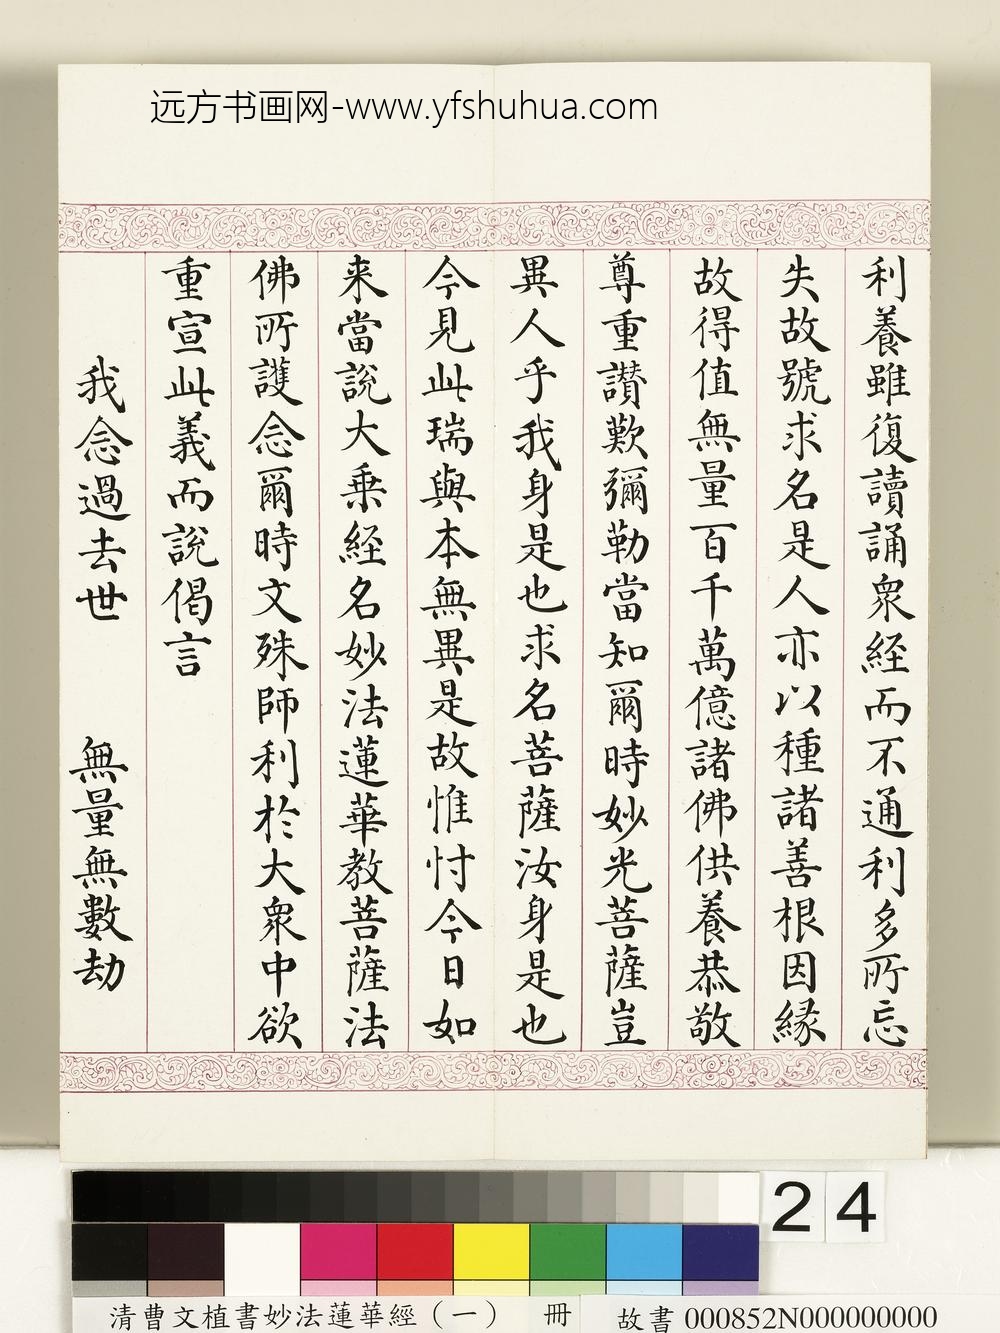 远方书画网-www.yfshuhua.com
利養雖復讀誦衆經而不通利多所忘
失故號求名是人亦以種諸善根因緣
故得值無量百千萬億諸佛供養恭敬
尊重讃歎彌勒當知爾時妙光菩薩豈
異人乎我身是也求名菩薩汝身是也
今見此瑞與本無異是故惟忖今日如
来當說大乗経名妙法蓮華教菩薩法
佛所護念爾時文殊師利於大衆中欲
重宣此義而說偈言
我念過去世　無量無數劫
24
清曹文植書妙法蓮華經（一）　冊　故書 000852N000000000